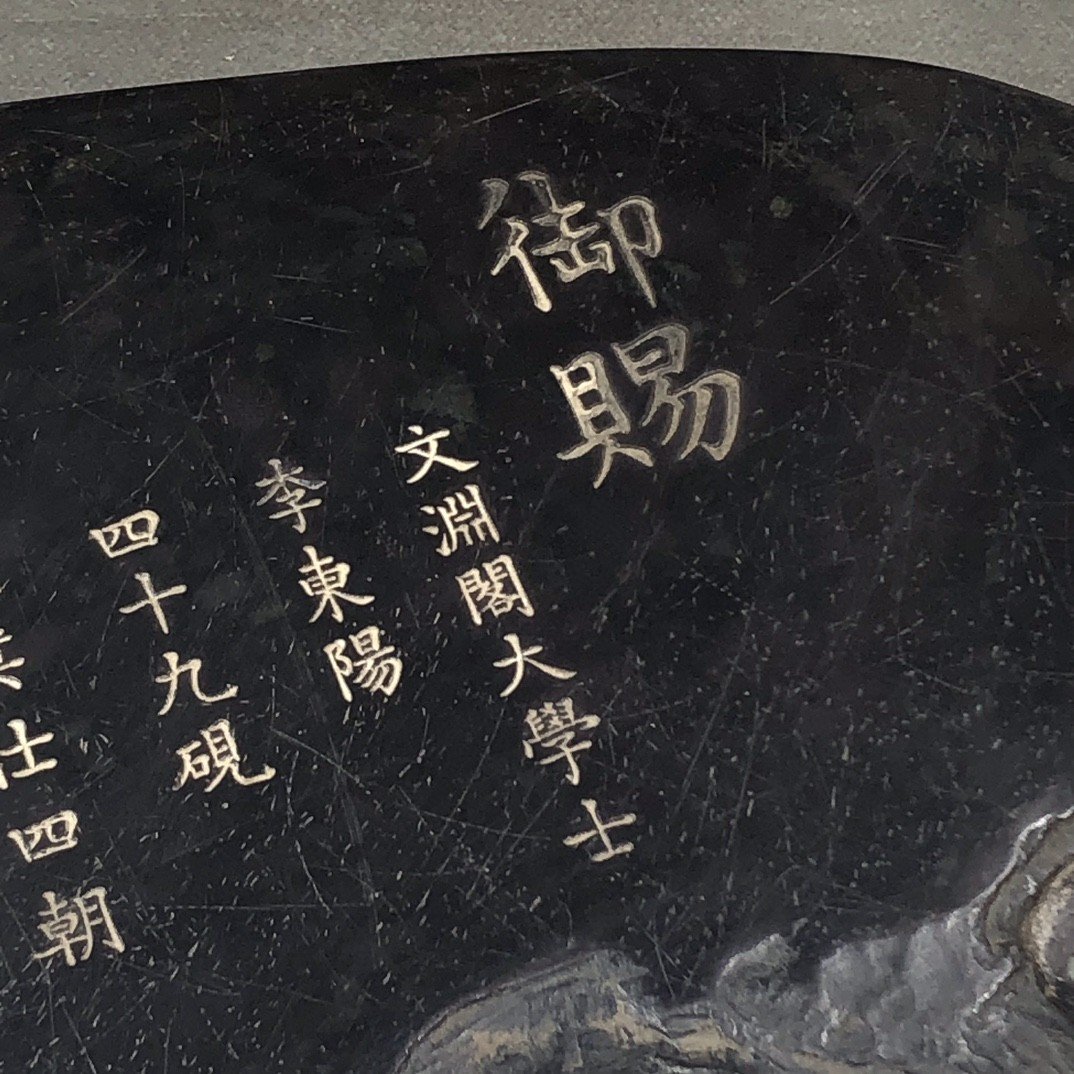 御賜
文淵閣大學士
李東陽
四十九硯
仕四朝